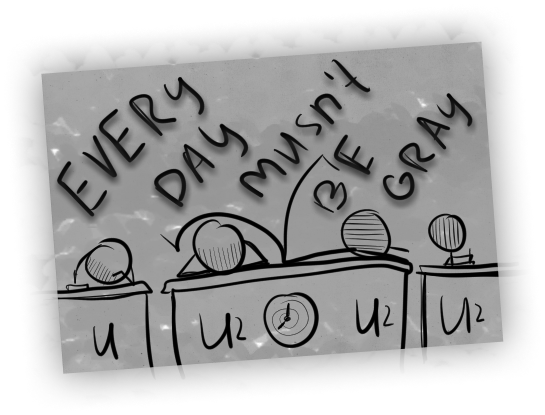 EVERY
DAY
MUSn't
BE
GRAY
U
U2
U2
U2